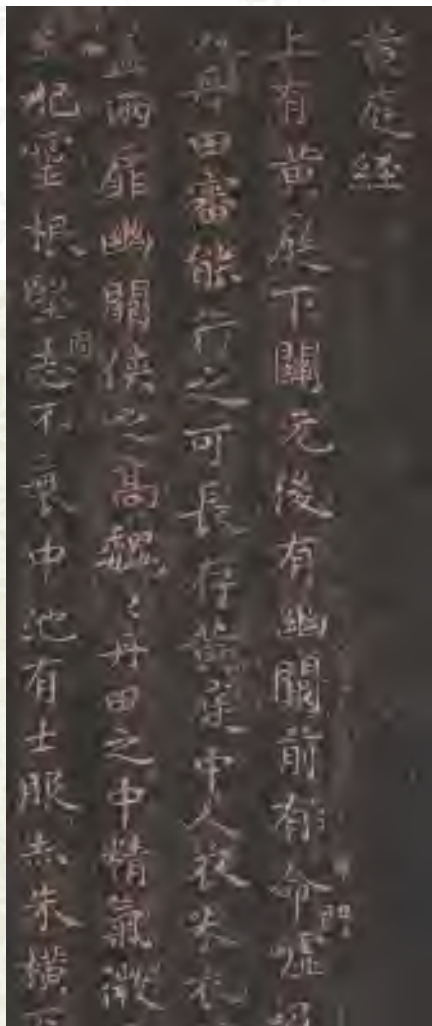 黄庭經
上有黄庭下關元後有幽闕前有命門噓
丹田審能行之可長存黄庭中人衣朱衣
兩扉幽關俠之高巍〻丹田之中精氣微
肥靈根堅志不衰中池有士服赤朱橫下